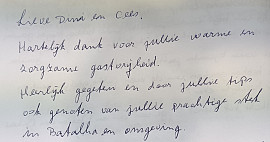 Lieve Dina en Cees,
Hartelijk dank voor jullie warme en
zorgzame gastvrijheid.
Heerlijk gegeten en door jullie tips
ook genoten van jullie prachtige stek
in Batalha en omgeving.